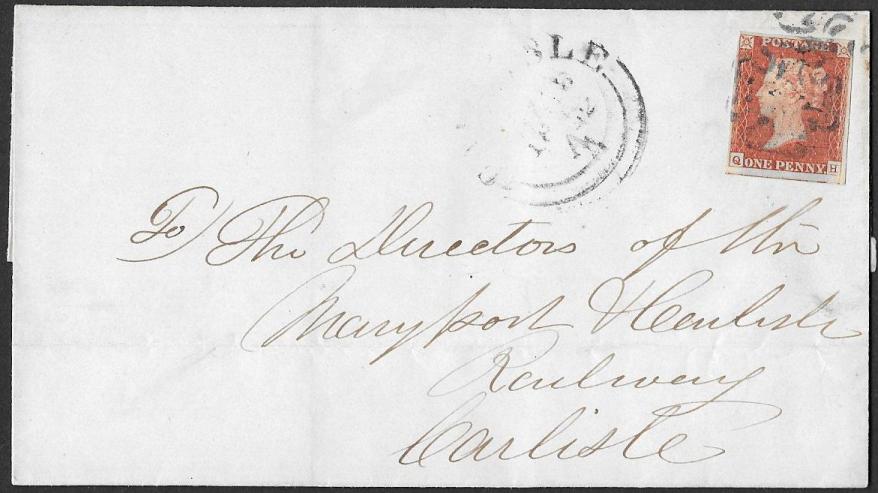 POSTAGE
Q ONE PENNY H
To/ The Directors of the
Maryport & Carlisle
Railway
Carlisle